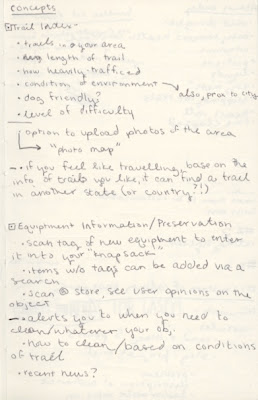 concepts
Trail Index-
• trails in your area
• length of trail
• how heavily trafficed
• condition of environment → also, prox to city
• dog friendly?
• level of difficulty
option to upload photos of the area
→ "photo map"
- • if you feel like travelling, base on the
info of trails you like, it can find a trail
in another state (or country?!)
Equiptment Information/Preservation
• scan tag of new equiptment to enter
it into your "knapsack"
• items w/o tags can be added via a
search
• scan @ store, see user opinions on the
object
- • alerts you to when you need to
clean/whatever your obj.
• how to clean/based on conditions
of trail
• recent news?